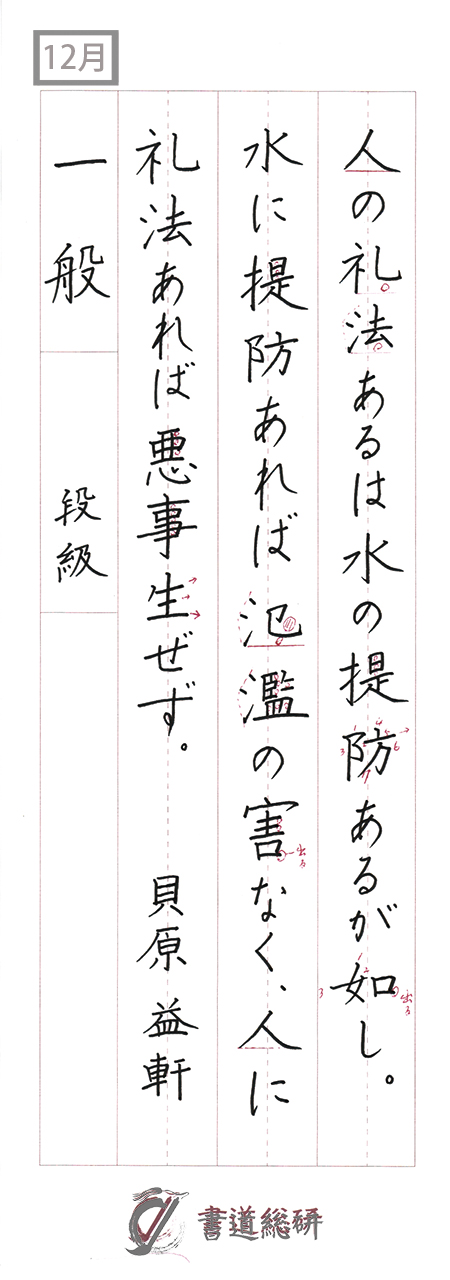 12月
人の礼法あるは水の提防あるが如し。
水に提防あれば氾濫の害なく、人に
礼法あれば悪事生ぜず。 貝原益軒
一般 段級
出る
出る
書道総研